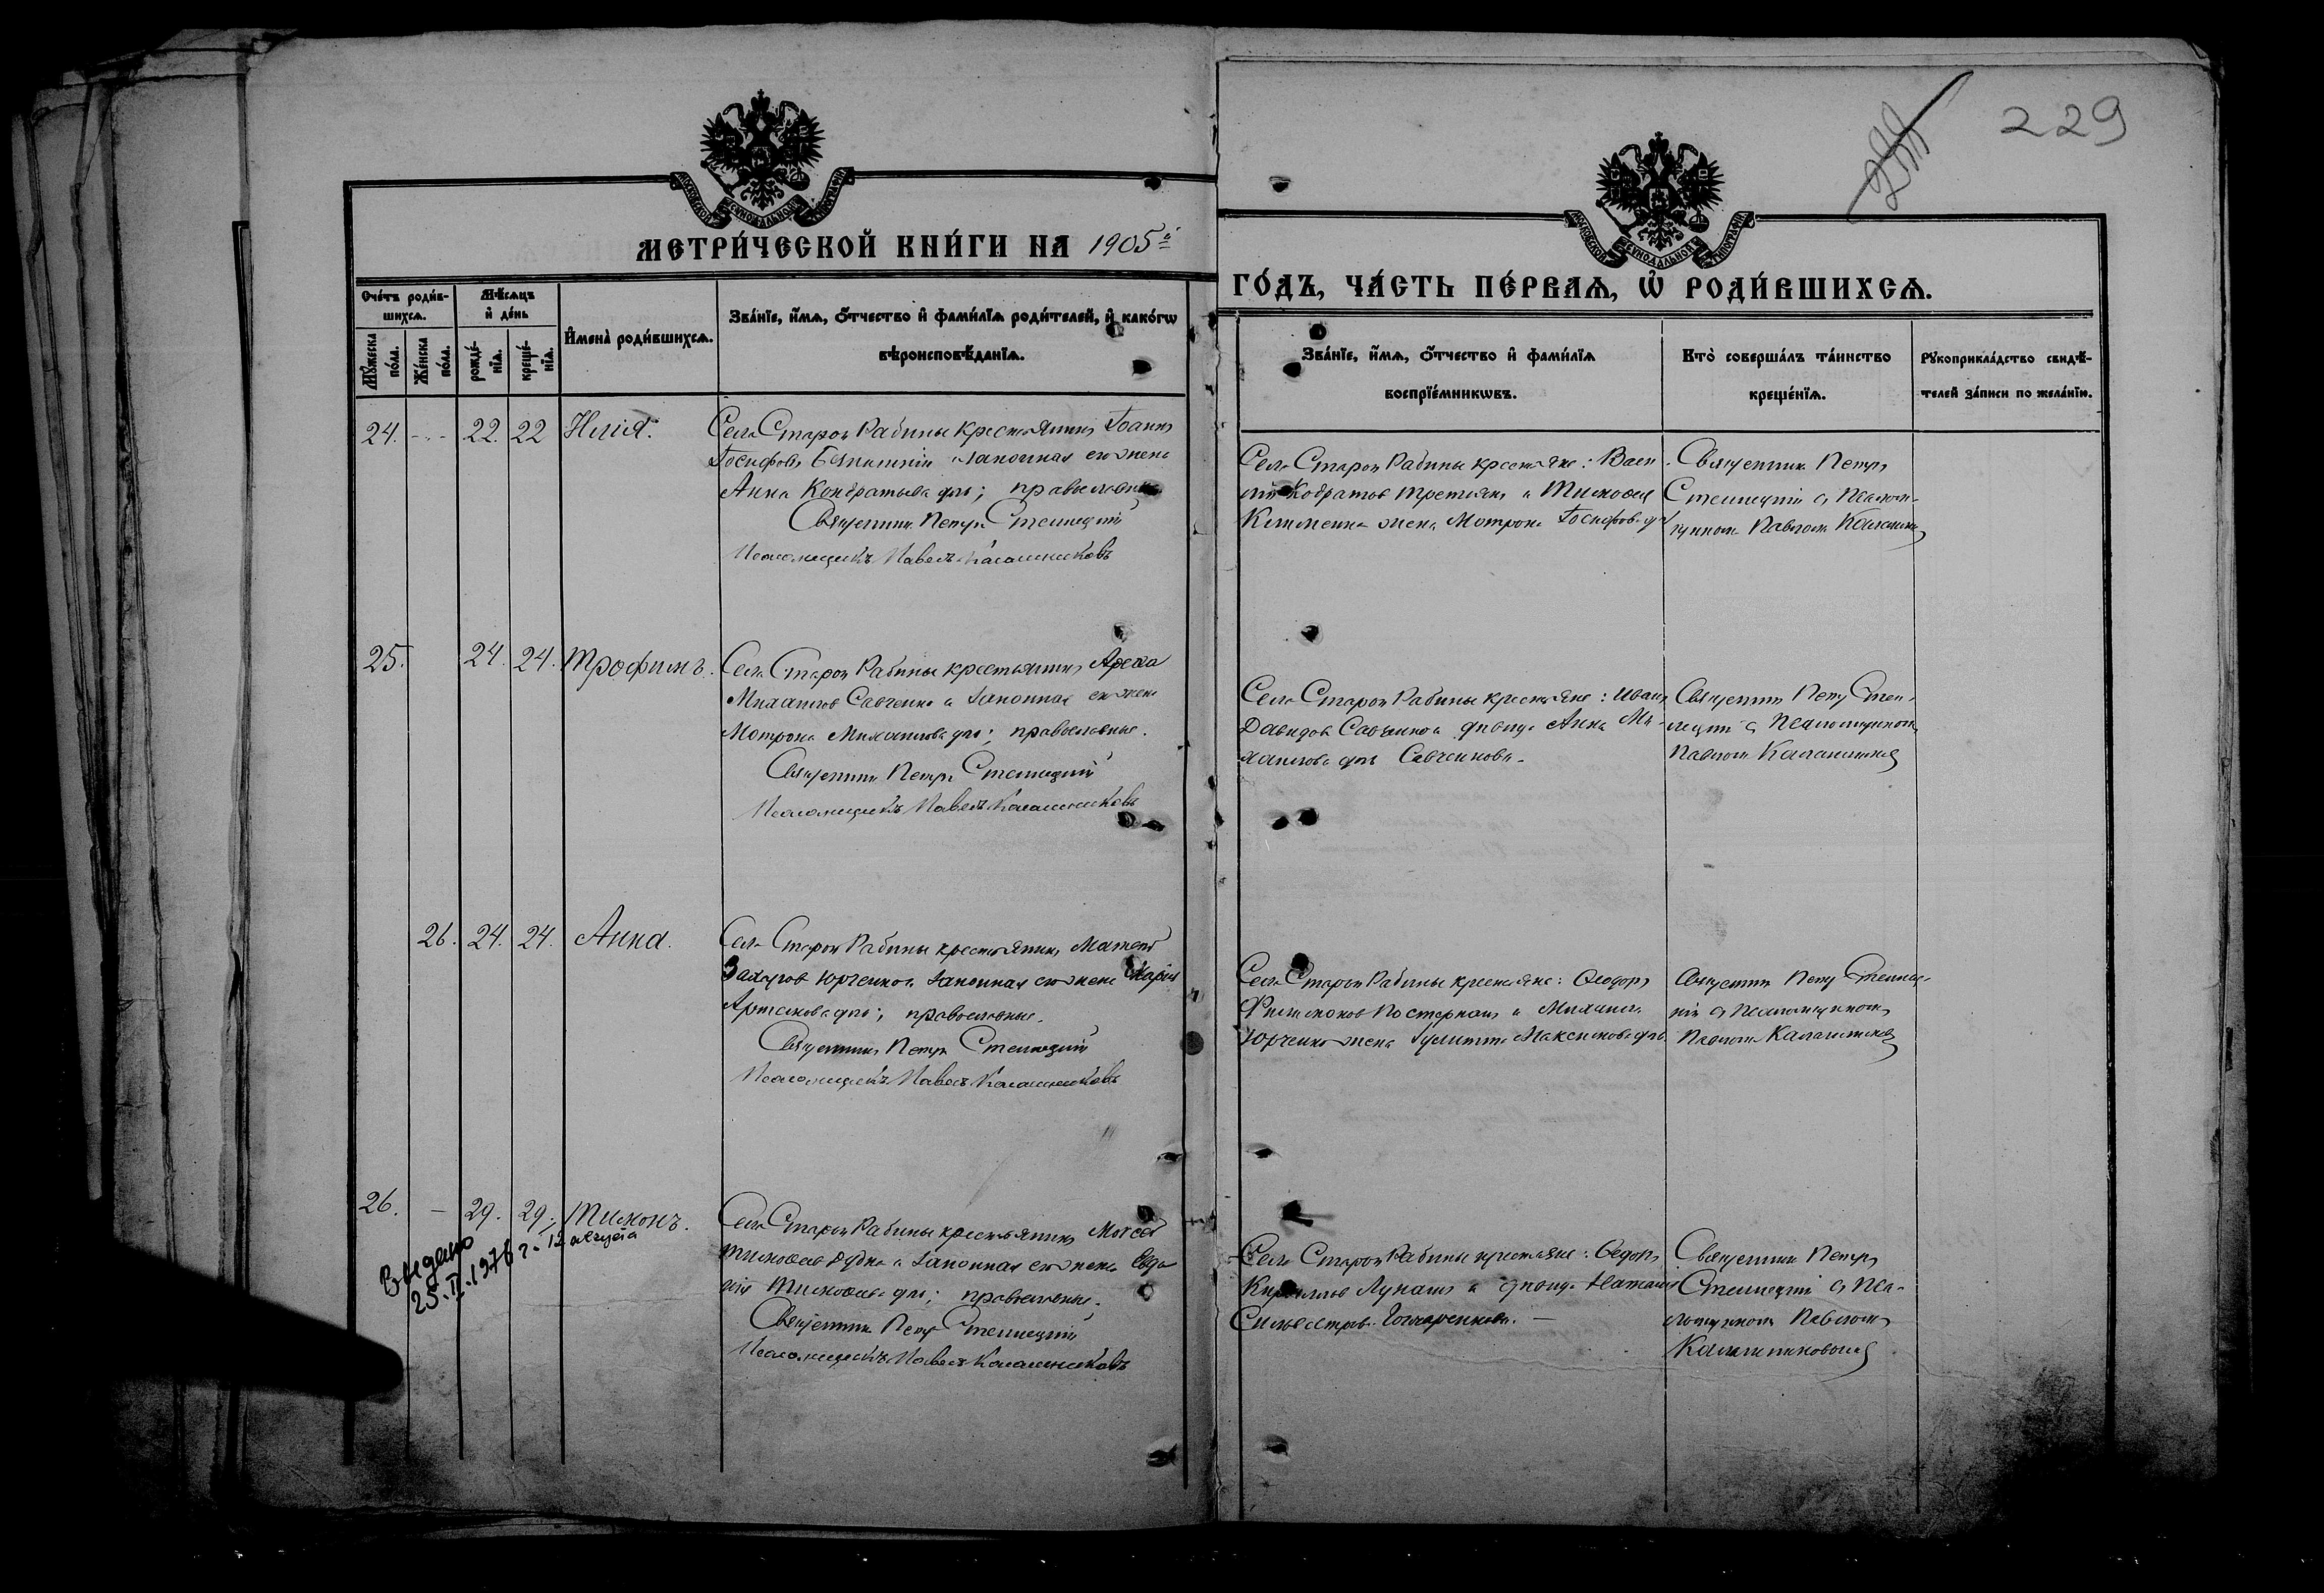 229
МЕТРИ́ЧЕСКОЙ КНИ́ГИ НА 1905й
ГО́ДЪ, ЧА́СТЬ ПЕ́РВАѦ, Ѡ҆ РОДИ́ВШИХСѦ.
Сче́тъ роди́в-
шихсѧ.
Мꙋ́жеска
по́ла.
Же́нска
по́ла.
Мѣ́сѧцъ
и҆ де́нь
рожде́-
нїѧ.
креще́-
нїѧ.
И҆мена̀ роди́вшихсѧ.
Зва́нїе, и҆́мѧ, ѻ҆́тчество и҆ фами́лїѧ роди́телей, и҆ како́гѡ
вѣроисповѣ́данїѧ.
Зва́нїе, и҆́мѧ, ѻ҆́тчество и҆ фами́лїѧ
воспрїе́мникѡвъ.
Кто̀ соверша́лъ та́инство
креще́нїѧ.
Рꙋкоприкла́дство свидѣ́-
телей за́писи по жела́нїю.
24. - - 22. 22 Илія.
Села Старой Рабины крестьянинъ Іоаннъ
Іосифовъ законная его жена
Анна Кондратьева дочь; православные
Священникъ Петръ
Псаломщикъ Павелъ Калашниковъ
Села Старой Рабины крестьяне: Васи-
лій Кодратов Третьякъ и Тимофея
жена Мотрона Іосифова
Священникъ Петръ
съ Псалом-
щикомъ Павломъ
25. 24. 24. Трофимъ.
Села Старой Рабины крестьянинъ
Михаилов Савченко и законная его жена
Мотрона Михаилова дочь; православные.
Священникъ Петръ
Псаломщикъ Павелъ Калашниковъ
Села Старой Рабины крестьяне: Иванъ
Давидов Савченко и дѣвица Анна Ми-
хаилова дочь Савченкова.
Священникъ Петръ
съ Псаломщикомъ
Павломъ
26. 24. 24. Анна.
Села Старой Рабины крестьянинъ Матей
Захаров Юрченко и законная его жена Марія
дочь; православные.
Священникъ Петръ
Псаломщикъ Павелъ Калашниковъ
Села Старой Рабины крестьяне: Ѳеодоръ
Филимонов Постернакъ и Михаила
Юрченко жена Максимова дочь
Священникъ Петръ
съ Псаломщикомъ
Павломъ
26. - 29. 29. Тимонъ.
Села Старой Рабины крестьянинъ Моисей
Тимофеев и законная его жена Евдо-
кія Тимофеева дочь; православные.
Священникъ Петръ
Псаломщикъ Павелъ Калашниковъ
Села Старой Рабины крестьяне: Ѳедоръ
Кириллов Лупашъ и дѣвица Наталія
Сильвестрова Гончаренкова. -
Священникъ Петръ
съ Пса-
ломщикомъ Павломъ
Калашниковымъ
12 августа
Выдано
25.II.1976 г.